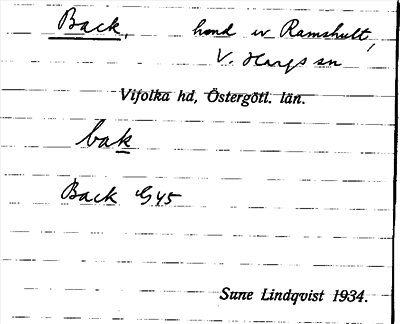 Back, hmd u Ramshult,
V. Hargs sn
Vifolka hd, Östergötl. län.
bak
Back G45
Sune Lindqvist 1934.